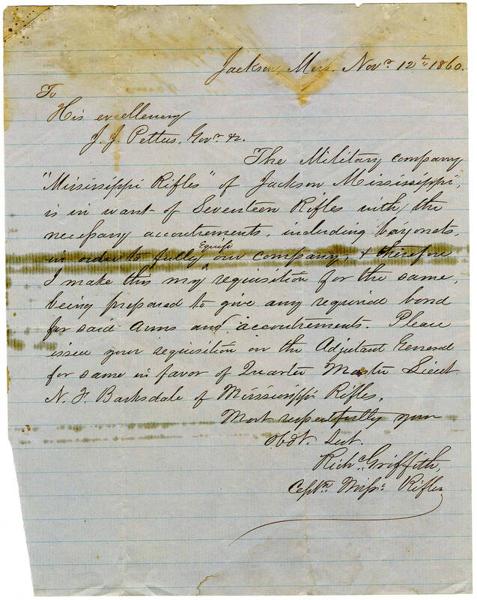 Jackson, Miss. Novr. 12th 1860.
To
His excellency
J. J. Pettus, Govr. &c.
The Military company
"Mississippi Rifles" of Jackson Mississippi,
is in want of Seventeen Rifles with the
necessary accoutrements including bayonets
in order to fully Equip our company, & therefore
I make this my requisition for the same,
being prepared to give any required bond
for said arms and accoutrements. Please
issue your requisition on the Adjutant General
for same in favor of Quarter Master Lieut
N. F. Barksdale of Mississippi Rifles.
Most respectfully your
Obdt. Svt.
Richd Griffith,
Captn. Missi: Rifles